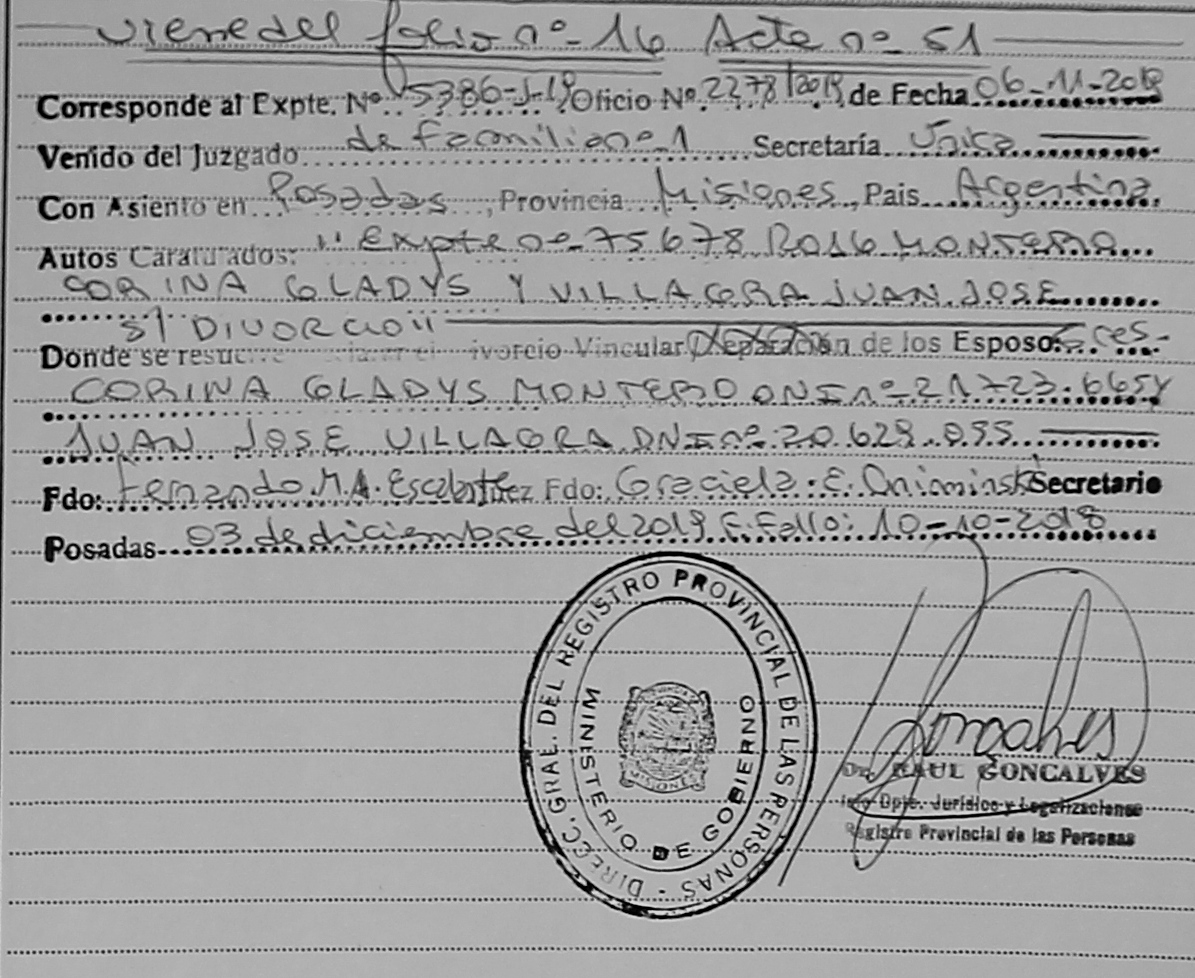 viene del folio nº 16 Acta nº 51
Corresponde al Expte. Nº 5386-J-19 Oficio Nº 2278/2019 de Fecha 06-11-2019
Venido del Juzgado de Familia nº 1 Secretaría Única
Con Asiento en Posadas, Provincia Misiones, Pais Argentina
Autos Caratulados: "Expte nº 75678/2016 MONTERO
CORINA GLADYS Y VILLAGRA JUAN JOSE
S/ DIVORCIO"
Donde se resuelve ivorcio Vincular de los Esposos:
CORINA GLADYS MONTERO DNI nº 21.723.665 y
JUAN JOSE VILLAGRA DNI nº 20.629.
Fdo: Fernando M.A. Fdo: Graciela E. Secretario
Posadas 03 de diciembre del 2019 F. Fallo: 10-10-2018
DIRECC. GRAL. DEL REGISTRO PROVINCIAL DE LAS PERSONAS
MINISTERIO DE GOBIERNO
MISIONES
Goncalves
Dr. RAUL GONCALVES
Jefe Dpto. Jurídico y Legalizaciones
Registro Provincial de las Personas